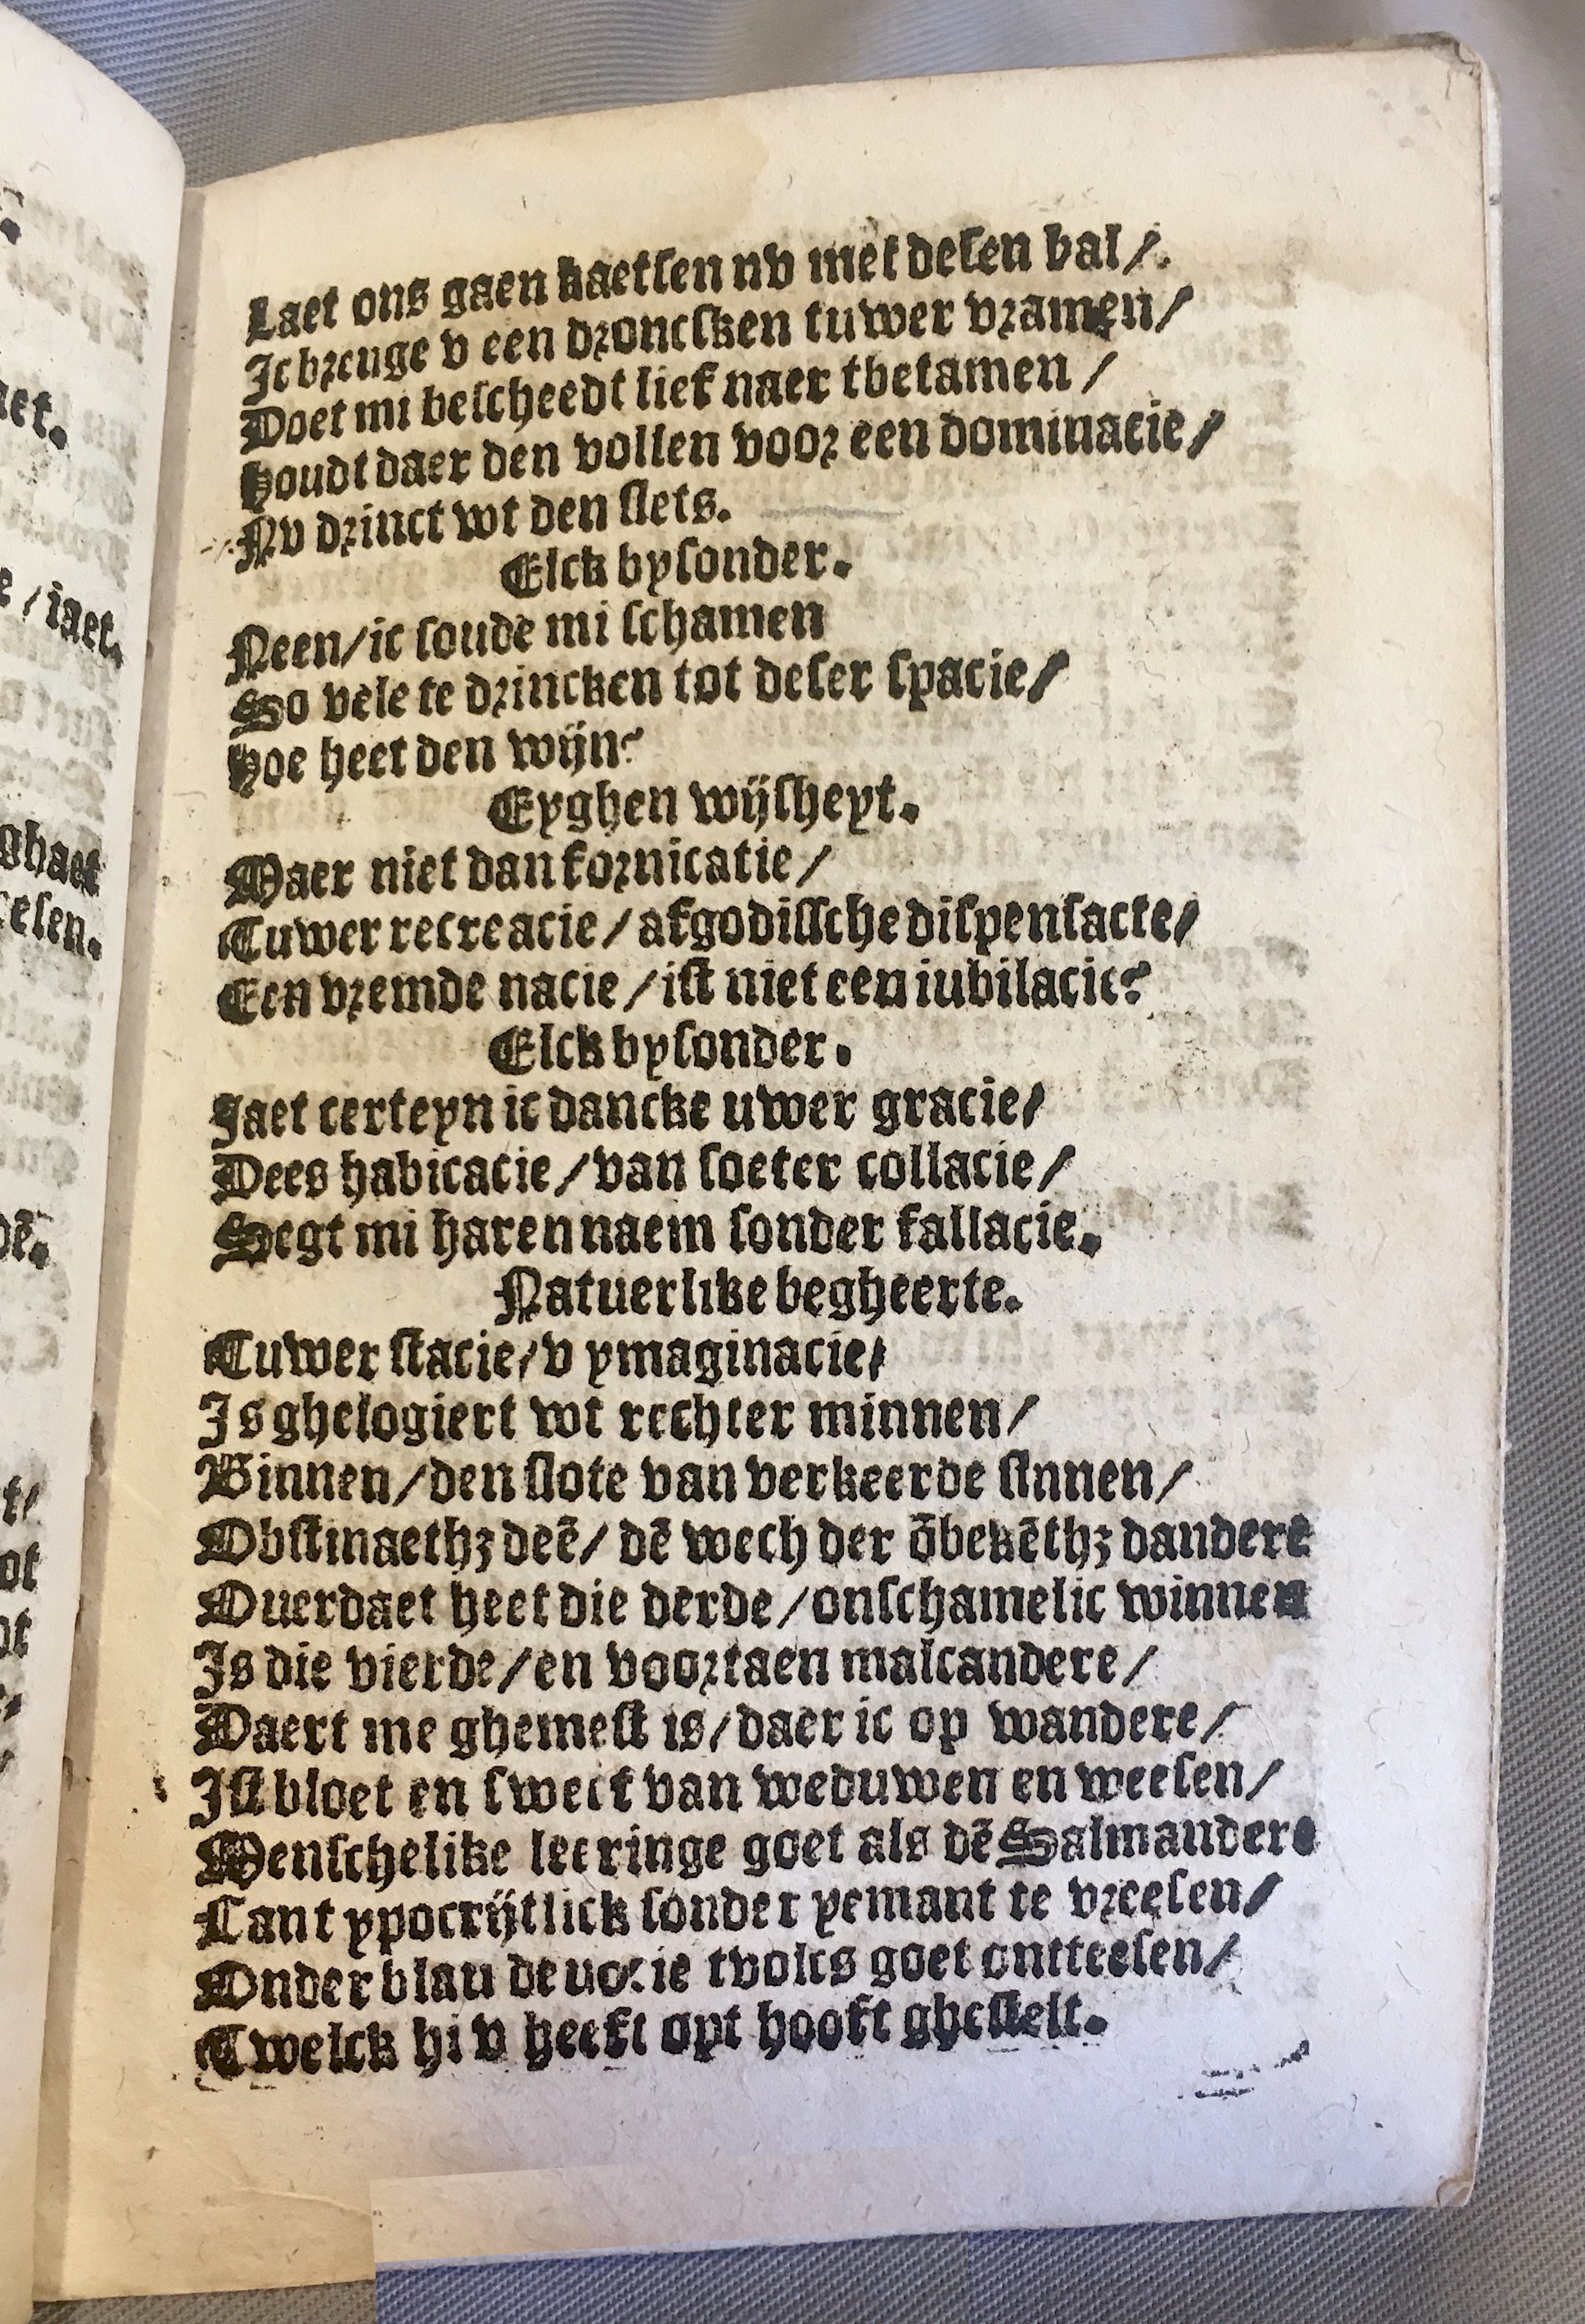 Laet ons gaen kaetsen nv met desen bal/
Ic brenge v een droncsken tuwer vramen/
Doet mi bescheedt lief naer tbetamen/
Houdt daer den vollen voor een dominacie/
Nv drinct wt den flets.
Elck bysonder.
Neen/ic soude mi schamen
So vele te drincken tot deser spacie/
Hoe heet den wijn?
Eyghen wijsheyt.
Maer niet dan fornicatie/
Tuwer recreacie/afgodissche dispensacie/
Een vremde nacie/ist niet een iubilacie?
Elck bysonder.
Jaet certeyn ic dancke uwer gracie/
Dees habitacie/van soeter collacie/
Segt mi haren naem sonder fallacie.
Natuerlike begheerte.
Tuwer stacie/v ymaginacie/
Is ghelogiert wt rechter minnen/
Binnen/den slote van verkeerde sinnen/
Obstinaethz deē/ dē wech der ōbekēthz dandere
Ouerdaet heet die derde/onschamelic winnen
Is die vierde/en voortaen malcandere/
Daert me ghemest is/daer ic op wandere/
Ist bloet en sweet van weduwen en weesen/
Menschelike leeringe goet als dē Salmandere
Cant ypocrijtlick sonder yemant te vreesen/
Onder blau deuocie tvolcs goet ontteesen/
Twelck hi v heeft opt hooft ghestelt.
iaet.
ghaet